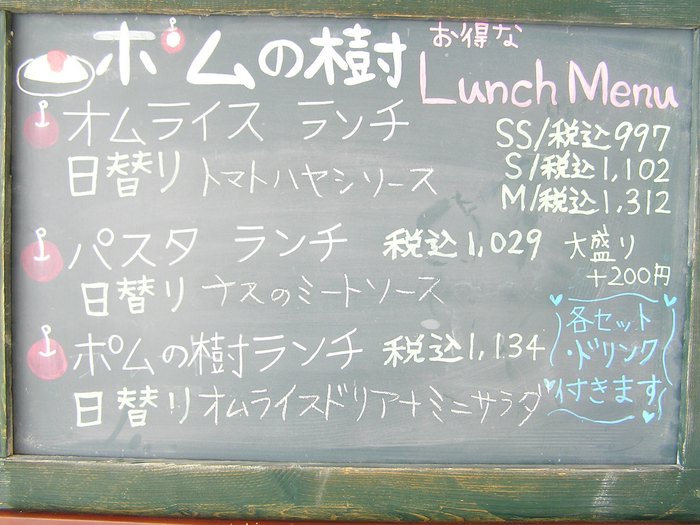 ポムの樹 お得な Lunch Menu
オムライス ランチ SS/税込997
日替り トマトハヤシソース S/税込1,102
M/税込1,312
パスタ ランチ 税込1,029 大盛り
+200円
日替り ナスのミートソース
各セット
・ドリンク
付きます
ポムの樹ランチ 税込1,134
日替り オムライスドリア+ミニサラダ